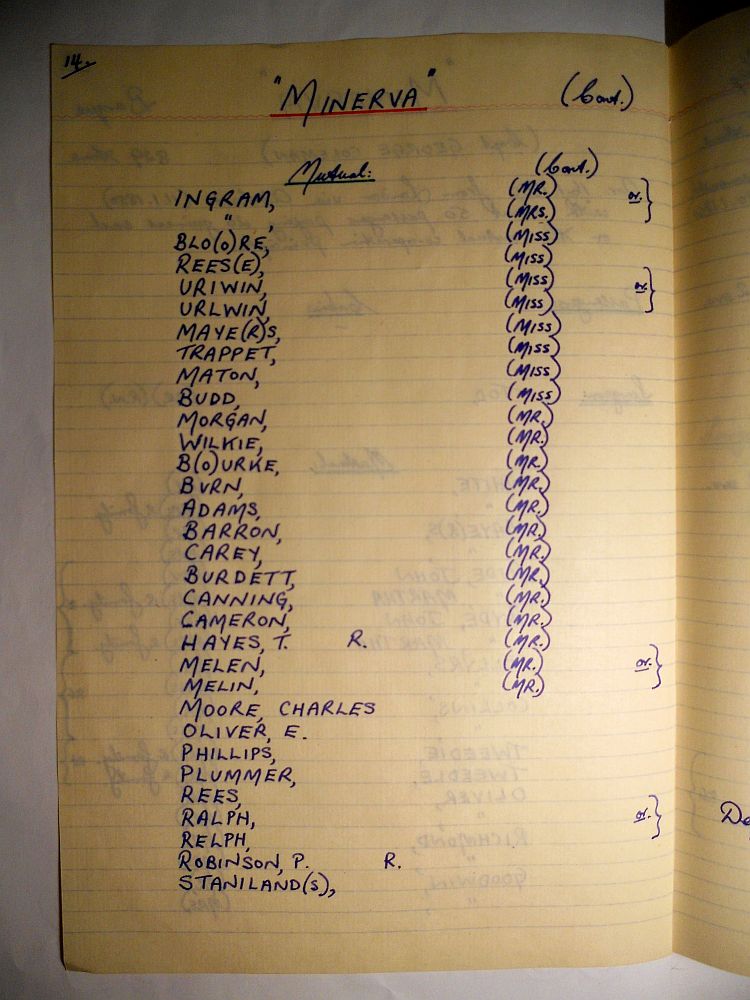 14.
"MINERVA" (Cont.)
Mutual: (Cont.)
INGRAM, (MR.) or. }
" , (MRS.)
BLO(O)RE, (MISS)
REES(E), (MISS)
URIWIN, (MISS) or. }
URLWIN, (MISS)
MAYE(R)S, (MISS)
TRAPPET, (MISS)
MATON, (MISS)
BUDD, (MISS)
MORGAN, (MR.)
WILKIE, (MR.)
B(O)URKE, (MR.)
BURN, (MR.)
ADAMS, (MR.)
BARRON, (MR.)
CAREY, (MR.)
BURDETT, (MR.)
CANNING, (MR.)
CAMERON, (MR.)
HAYES, T. R. (MR.)
MELEN, (MR.) or. }
MELIN, (MR.)
MOORE, CHARLES
OLIVER, E.
PHILLIPS,
PLUMMER,
REES,
RALPH, or. }
RELPH,
ROBINSON, P. R.
STANILAND(S),